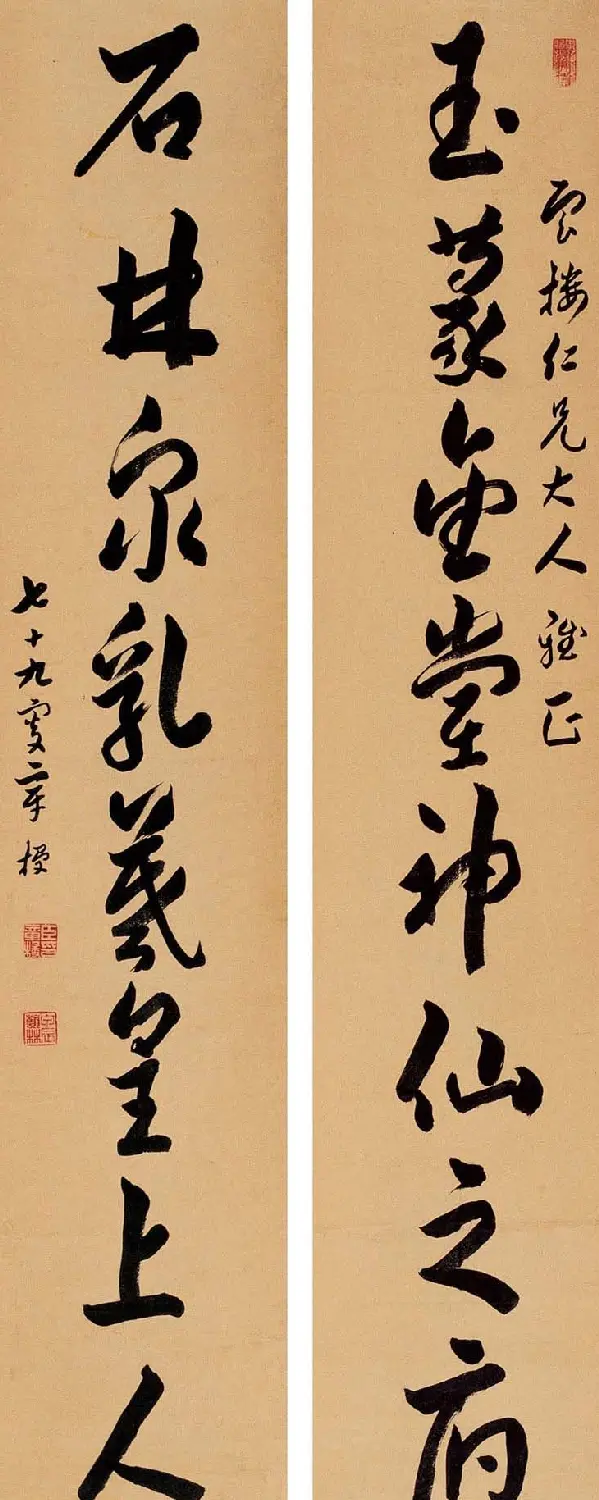 雲樓仁兄大人雅正
玉篆金堂神仙之府
石林泉乳羲皇上人
七十九叟章梫